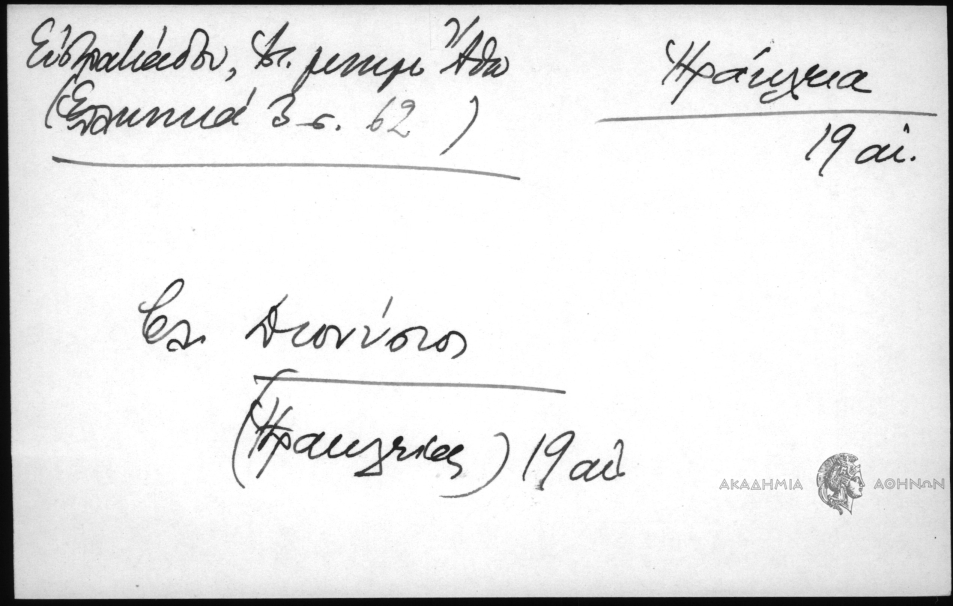 Εὐστρατιάδου, Ἁγ. μνημ Ἄθω
(Ἑλληνικά 3 σ. 62)
Ἡράκλεια
19 αἰ.
βλ. Διονύσιος
(Ἡρακλείας) 19 αἰ
ΑΚΑΔΗΜΙΑ ΑΘΗΝΩΝ